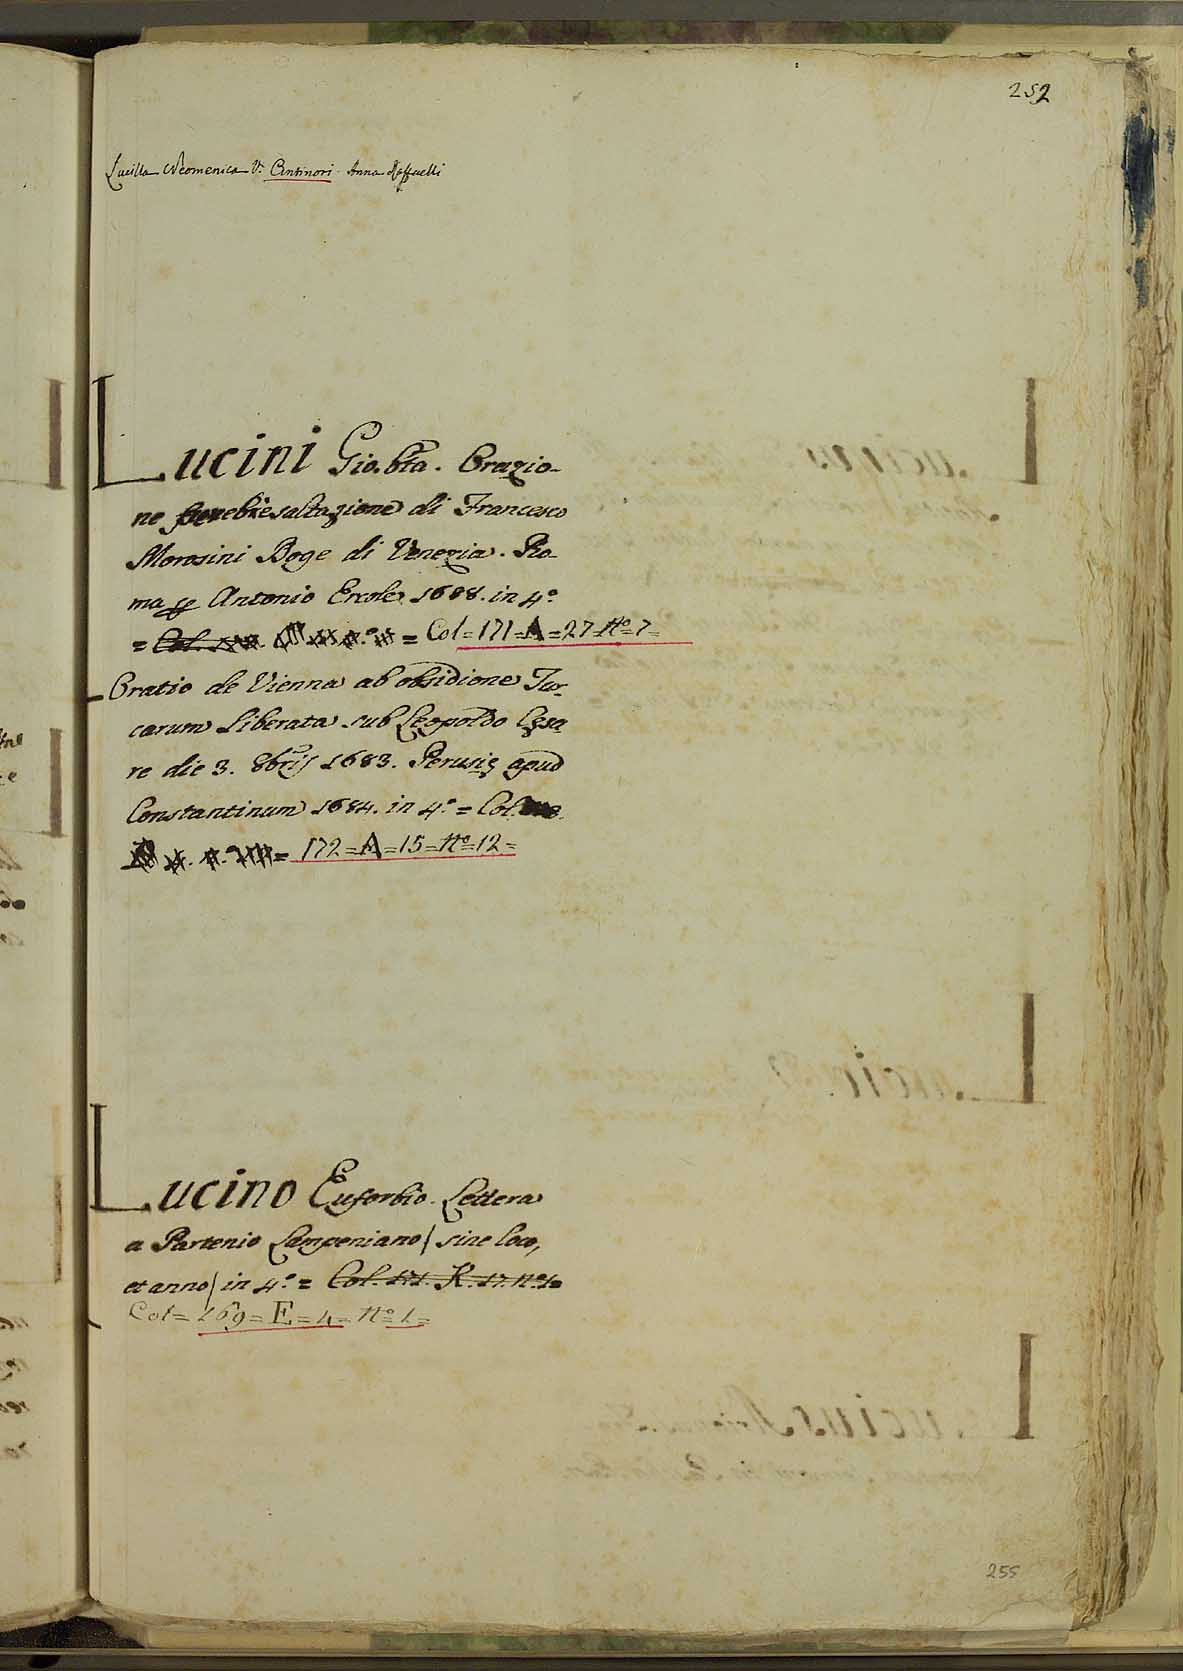 252
Lucilla Neomenica V. Antinori. Anna Raffaelli
Lucini Gio. Bta. Orazio-
ne esaltazione di Francesco
Morosini Doge di Venezia. Ro-
ma Antonio Ercole 1688. in 4.°
= Col. = Col = 171 = A = 27 = N.° = 7 =
Oratio de Vienna ab obsidione Tur-
carum Liberata sub Leopoldo Cęsa
re die 3. 8bris 1683. Perusię apud
Constantinum 1684. in 4.° = Col.
= 172 = A = 15 = N.° = 12 =
Lucino Euforbio. Lettera
a Partenio Campeniano / sine loco,
et anno / in 4.° = Col. 171. K. 17. N.° 1 =
Col = 169 = E = 4 = N.° 1 =
255